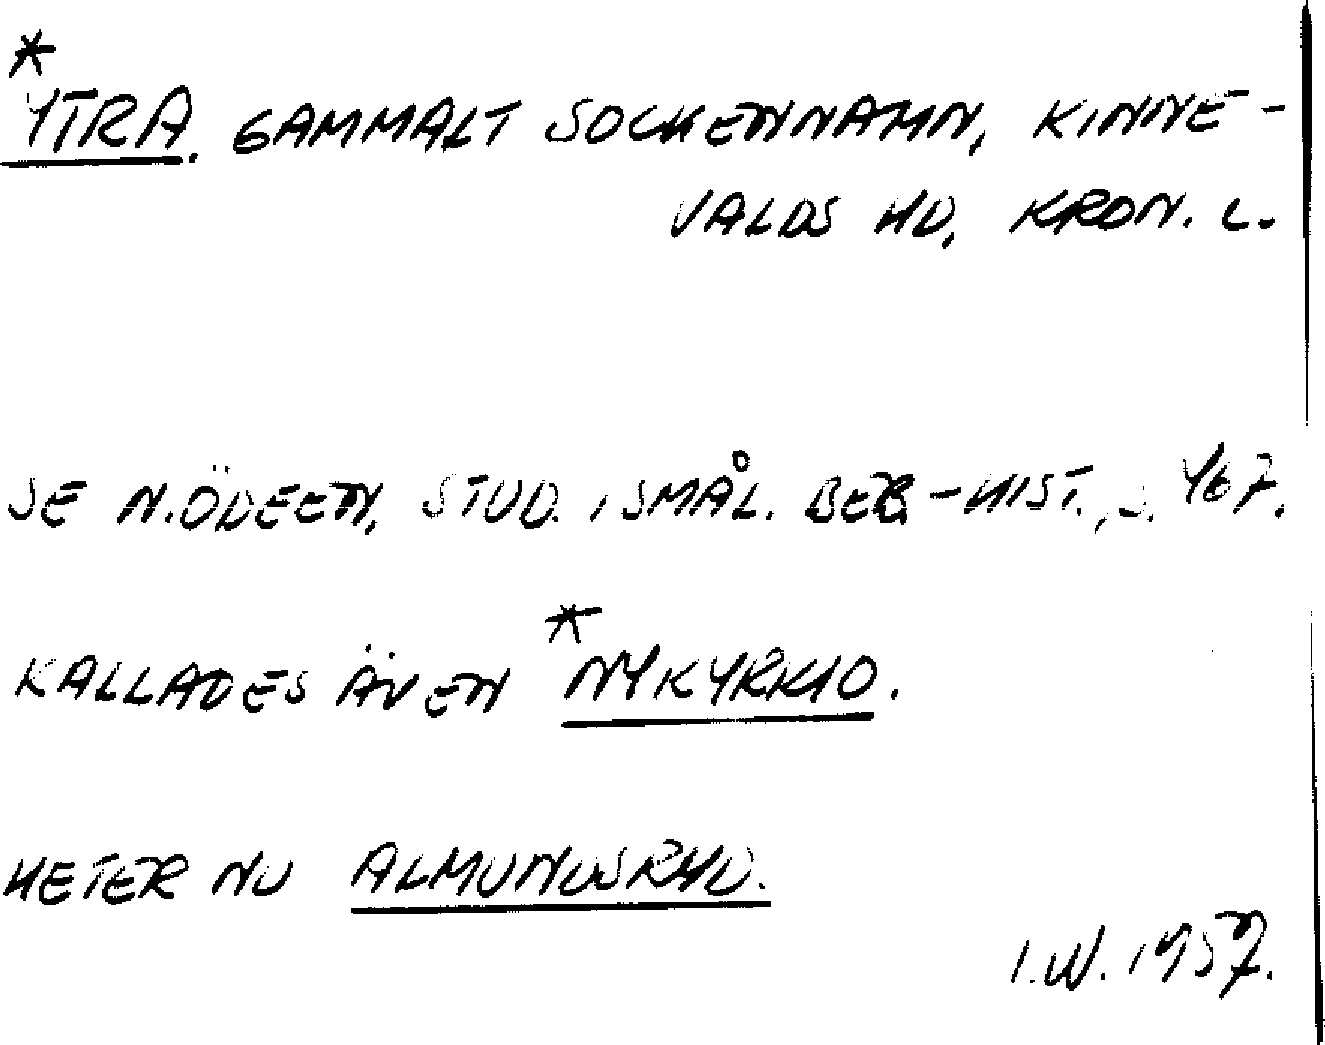 *YTRA. GAMMALT SOCKENNAMN, KINNE-
VALDS HD, KRON. L.
SE N.ÖDEEN, STUD. I SMÅL. BEB-HIST., S. 467.
KALLADES ÄVEN *NYKYRKIO.
HETER NU ALMUNDSRYD.
I.W. 1957.